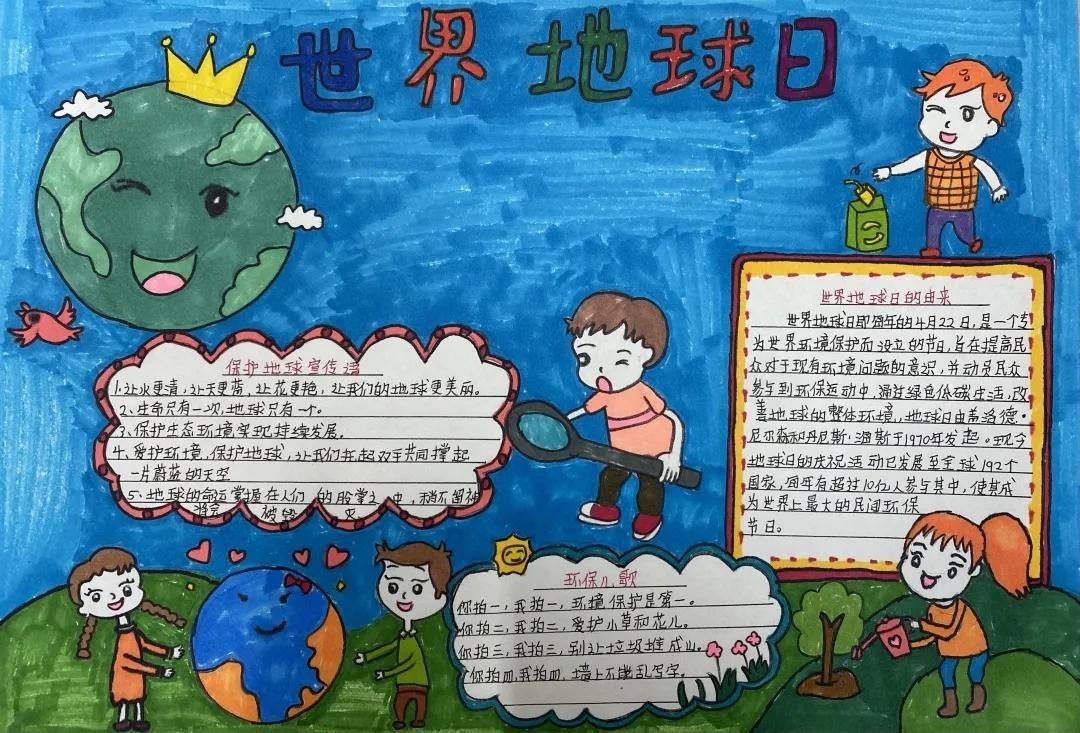 世界地球日
保护地球宣传语
1.让水更清,让天更蓝,让花更艳,让我们的地球更美丽。
2、生命只有一次,地球只有一个。
3、保护生态环境实现持续发展。
4、爱护环境,保护地球,让我们共起双手共同撑起
一片蔚蓝的天空
5、地球的命运掌握在人们的股掌之中,稍不留神
将会被毁灭
世界地球日的由来
世界地球日即每年的4月22日,是一个专
为世界环境保护而设立的节日,旨在提高民
众对于现有环境问题的意识,并动员民众
参与到环保运动中,通过绿色低碳生活,改
善地球的整体环境,地球日由盖洛德·
尼尔森和丹尼斯·海斯于1970年发起。现今
地球日的庆祝活动已发展至全球192个
国家,每年有超过10亿人参与其中,使其成
为世界上最大的民间环保
节日。
环保儿歌
你拍一,我拍一,环境保护是第一。
你拍二,我拍二,爱护小草和花儿。
你拍三,我拍三,别让垃圾堆成山。
你拍四,我拍四,墙上不能乱写字。